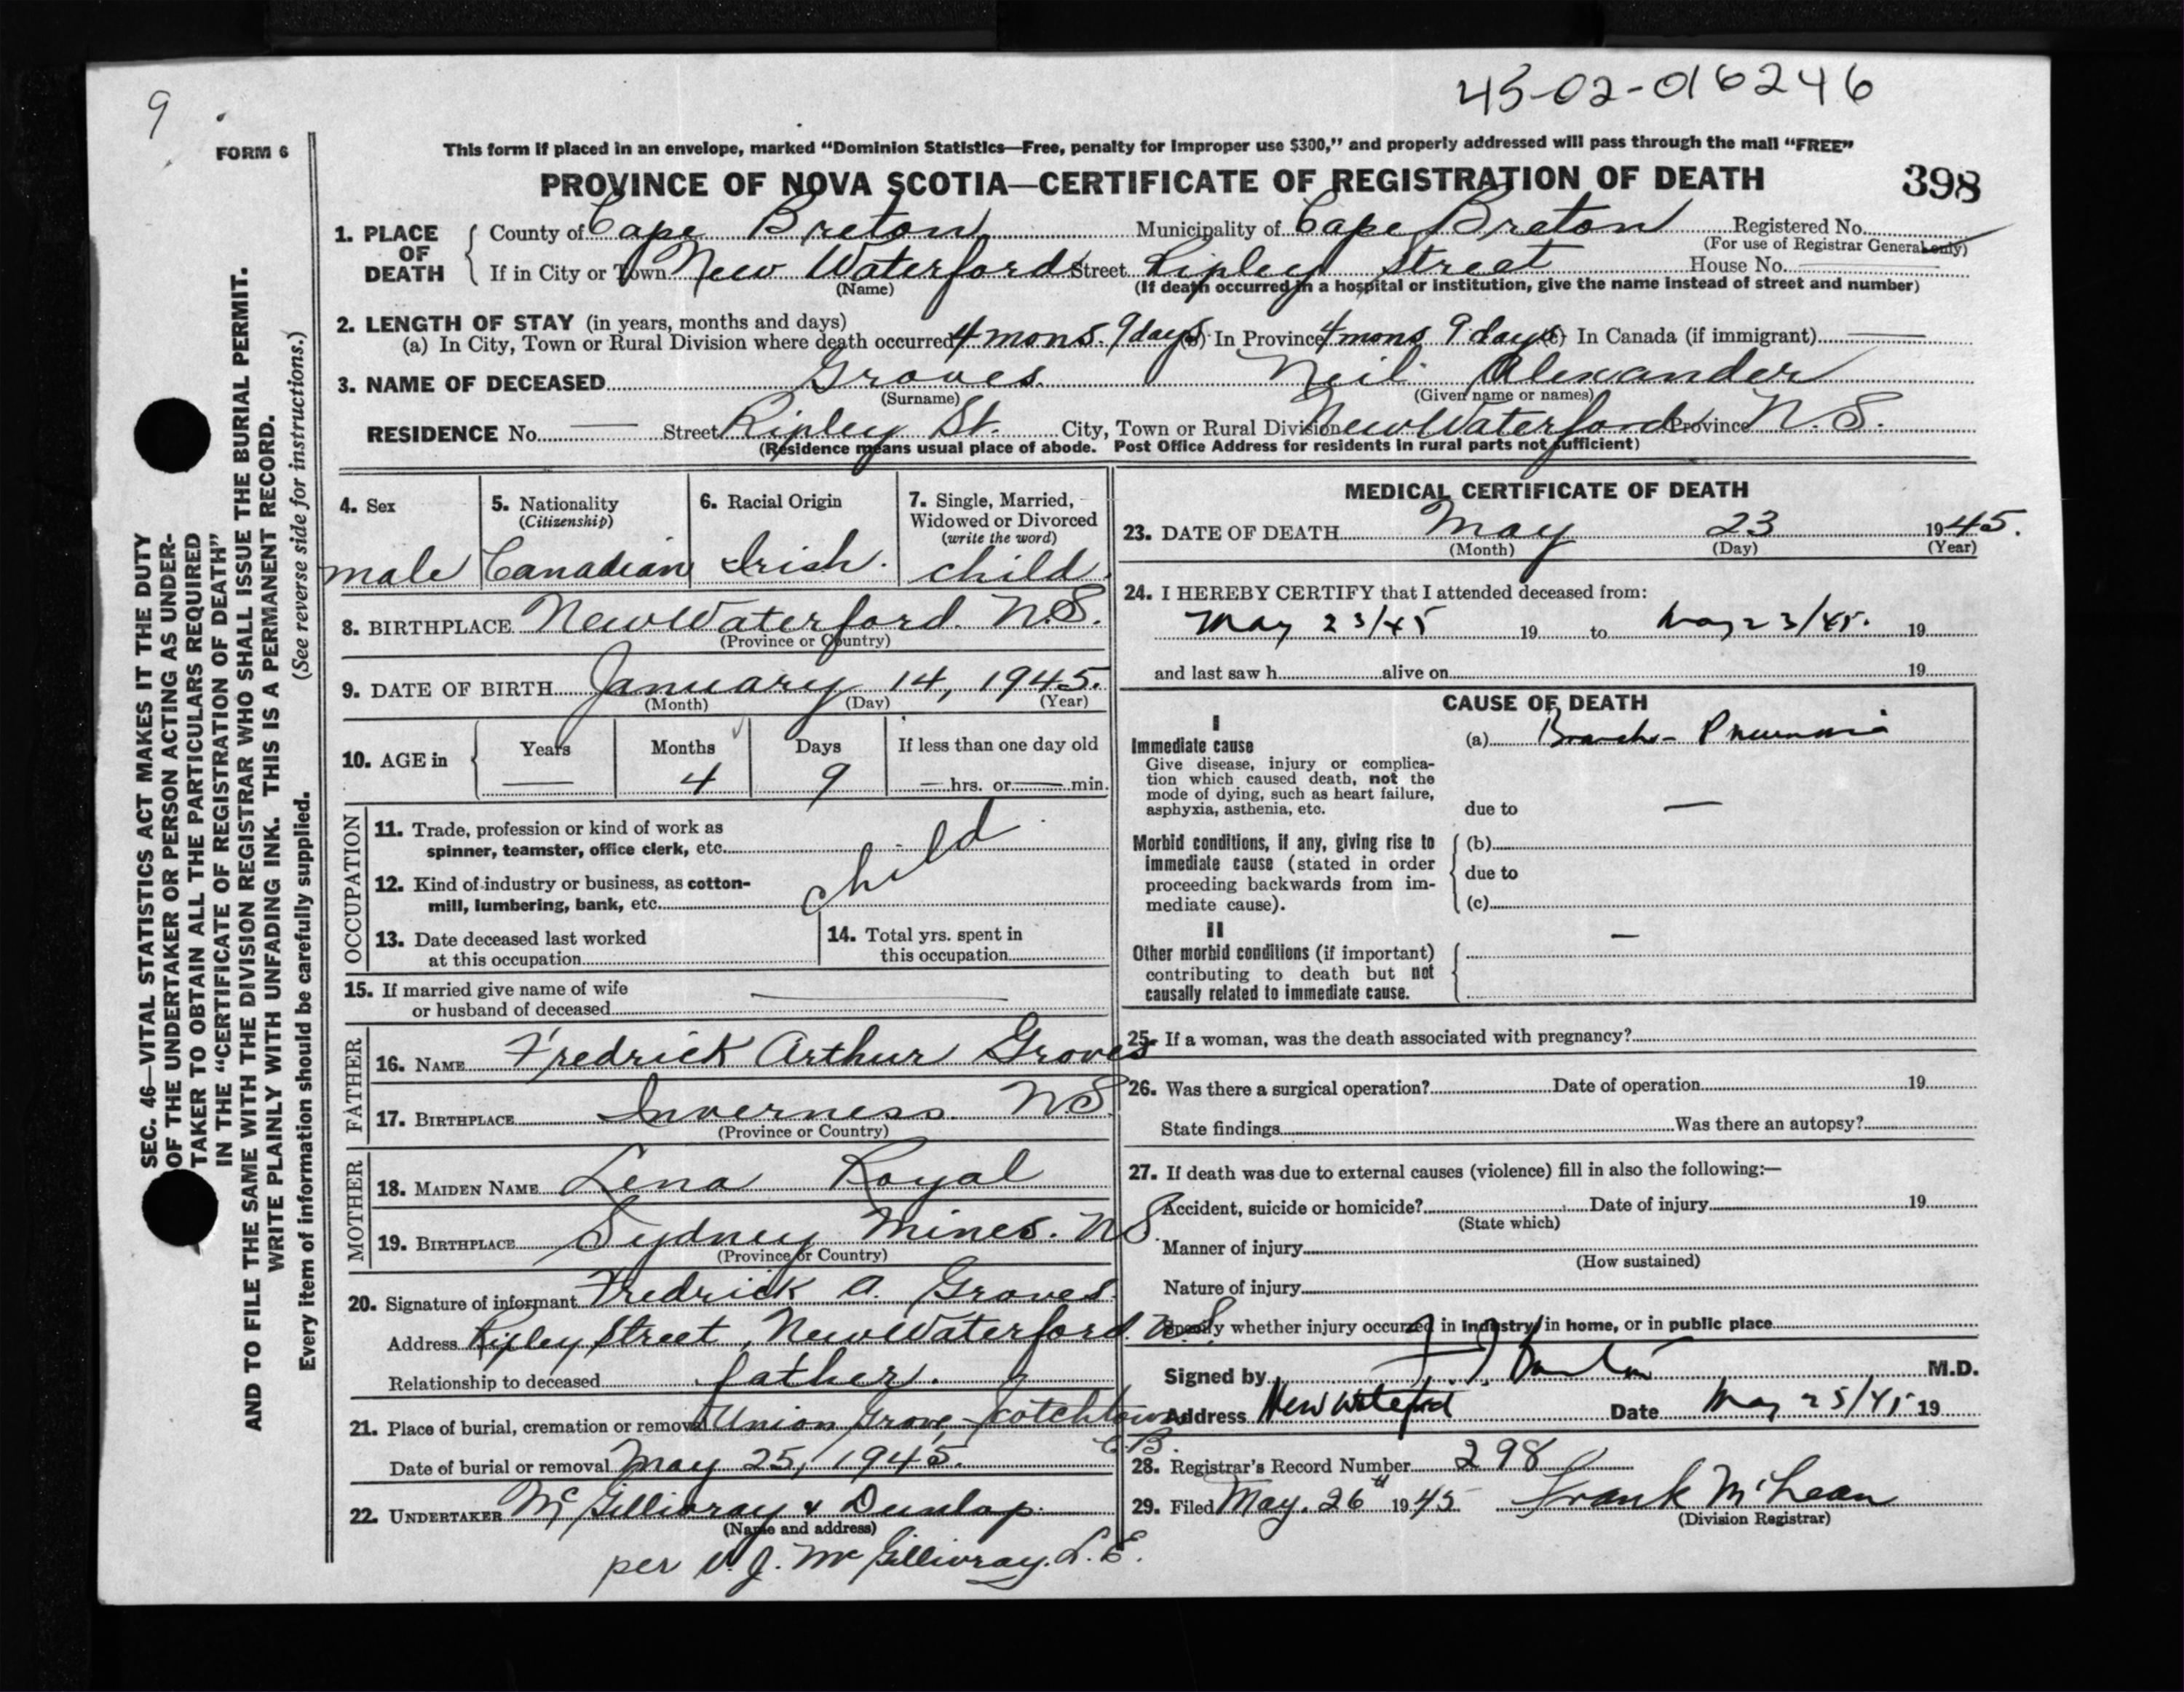 45-02-016246
9
FORM 6
This form if placed in an envelope, marked "Dominion Statistics—Free, penalty for improper use $300," and properly addressed will pass through the mail "FREE"
PROVINCE OF NOVA SCOTIA—CERTIFICATE OF REGISTRATION OF DEATH
398
1. PLACE OF DEATH { County of Cape Breton Municipality of Cape Breton Registered No.
(For use of Registrar General only)
If in City or Town New Waterford Street Ripley Street House No. —
(Name) (If death occurred in a hospital or institution, give the name instead of street and number)
2. LENGTH OF STAY (in years, months and days)
(a) In City, Town or Rural Division where death occurred 4 mons. 9 days (b) In Province 4 mons 9 days (c) In Canada (if immigrant) —
3. NAME OF DECEASED Groves Neil Alexander
(Surname) (Given name or names)
RESIDENCE No. — Street Ripley St. City, Town or Rural Division New Waterford Province N.S.
(Residence means usual place of abode. Post Office Address for residents in rural parts not sufficient)
4. Sex
male
5. Nationality
(Citizenship)
Canadian
6. Racial Origin
Irish.
7. Single, Married,
Widowed or Divorced
(write the word)
child
8. BIRTHPLACE New Waterford. N.S.
(Province or Country)
9. DATE OF BIRTH January 14, 1945.
(Month) (Day) (Year)
10. AGE in { Years Months Days If less than one day old
— 4 9 — hrs. or — min.
OCCUPATION
11. Trade, profession or kind of work as
spinner, teamster, office clerk, etc.
child
12. Kind of industry or business, as cotton-
mill, lumbering, bank, etc.
13. Date deceased last worked
at this occupation
14. Total yrs. spent in
this occupation
15. If married give name of wife
or husband of deceased —
FATHER
16. NAME Fredrick Arthur Groves
17. BIRTHPLACE Inverness N.S
(Province or Country)
MOTHER
18. MAIDEN NAME Lena Royal
19. BIRTHPLACE Sydney Mines. NS.
(Province or Country)
20. Signature of informant Fredrick A. Groves.
Address Ripley Street, New Waterford. N.S.
Relationship to deceased father.
21. Place of burial, cremation or removal Union Grove, Scotchtown
C.B.
Date of burial or removal May 25, 1945.
22. UNDERTAKER McGillivray & Dunlop.
(Name and address)
per J. McGillivray. L.E.
MEDICAL CERTIFICATE OF DEATH
23. DATE OF DEATH May 23 1945.
(Month) (Day) (Year)
24. I HEREBY CERTIFY that I attended deceased from:
May 23/45 19 to May 23/45. 19
and last saw h alive on 19
CAUSE OF DEATH
I
Immediate cause
Give disease, injury or complica-
tion which caused death, not the
mode of dying, such as heart failure,
asphyxia, asthenia, etc.
(a) Broncho-Pneumonia
due to —
Morbid conditions, if any, giving rise to
immediate cause (stated in order
proceeding backwards from im-
mediate cause).
(b)
due to
(c)
II
Other morbid conditions (if important)
contributing to death but not
causally related to immediate cause.
—
25. If a woman, was the death associated with pregnancy?
26. Was there a surgical operation? Date of operation 19
State findings Was there an autopsy?
27. If death was due to external causes (violence) fill in also the following:—
Accident, suicide or homicide? Date of injury 19
(State which)
Manner of injury
(How sustained)
Nature of injury
Specify whether injury occurred in industry, in home, or in public place
Signed by M.D.
Address New Waterford Date May 25/45 19
28. Registrar's Record Number 298
29. Filed May. 26th 1945 Frank McLean
(Division Registrar)
SEC. 46—VITAL STATISTICS ACT MAKES IT THE DUTY
OF THE UNDERTAKER OR PERSON ACTING AS UNDER-
TAKER TO OBTAIN ALL THE PARTICULARS REQUIRED
IN THE "CERTIFICATE OF REGISTRATION OF DEATH"
AND TO FILE THE SAME WITH THE DIVISION REGISTRAR WHO SHALL ISSUE THE BURIAL PERMIT.
WRITE PLAINLY WITH UNFADING INK. THIS IS A PERMANENT RECORD.
Every item of information should be carefully supplied. (See reverse side for instructions.)